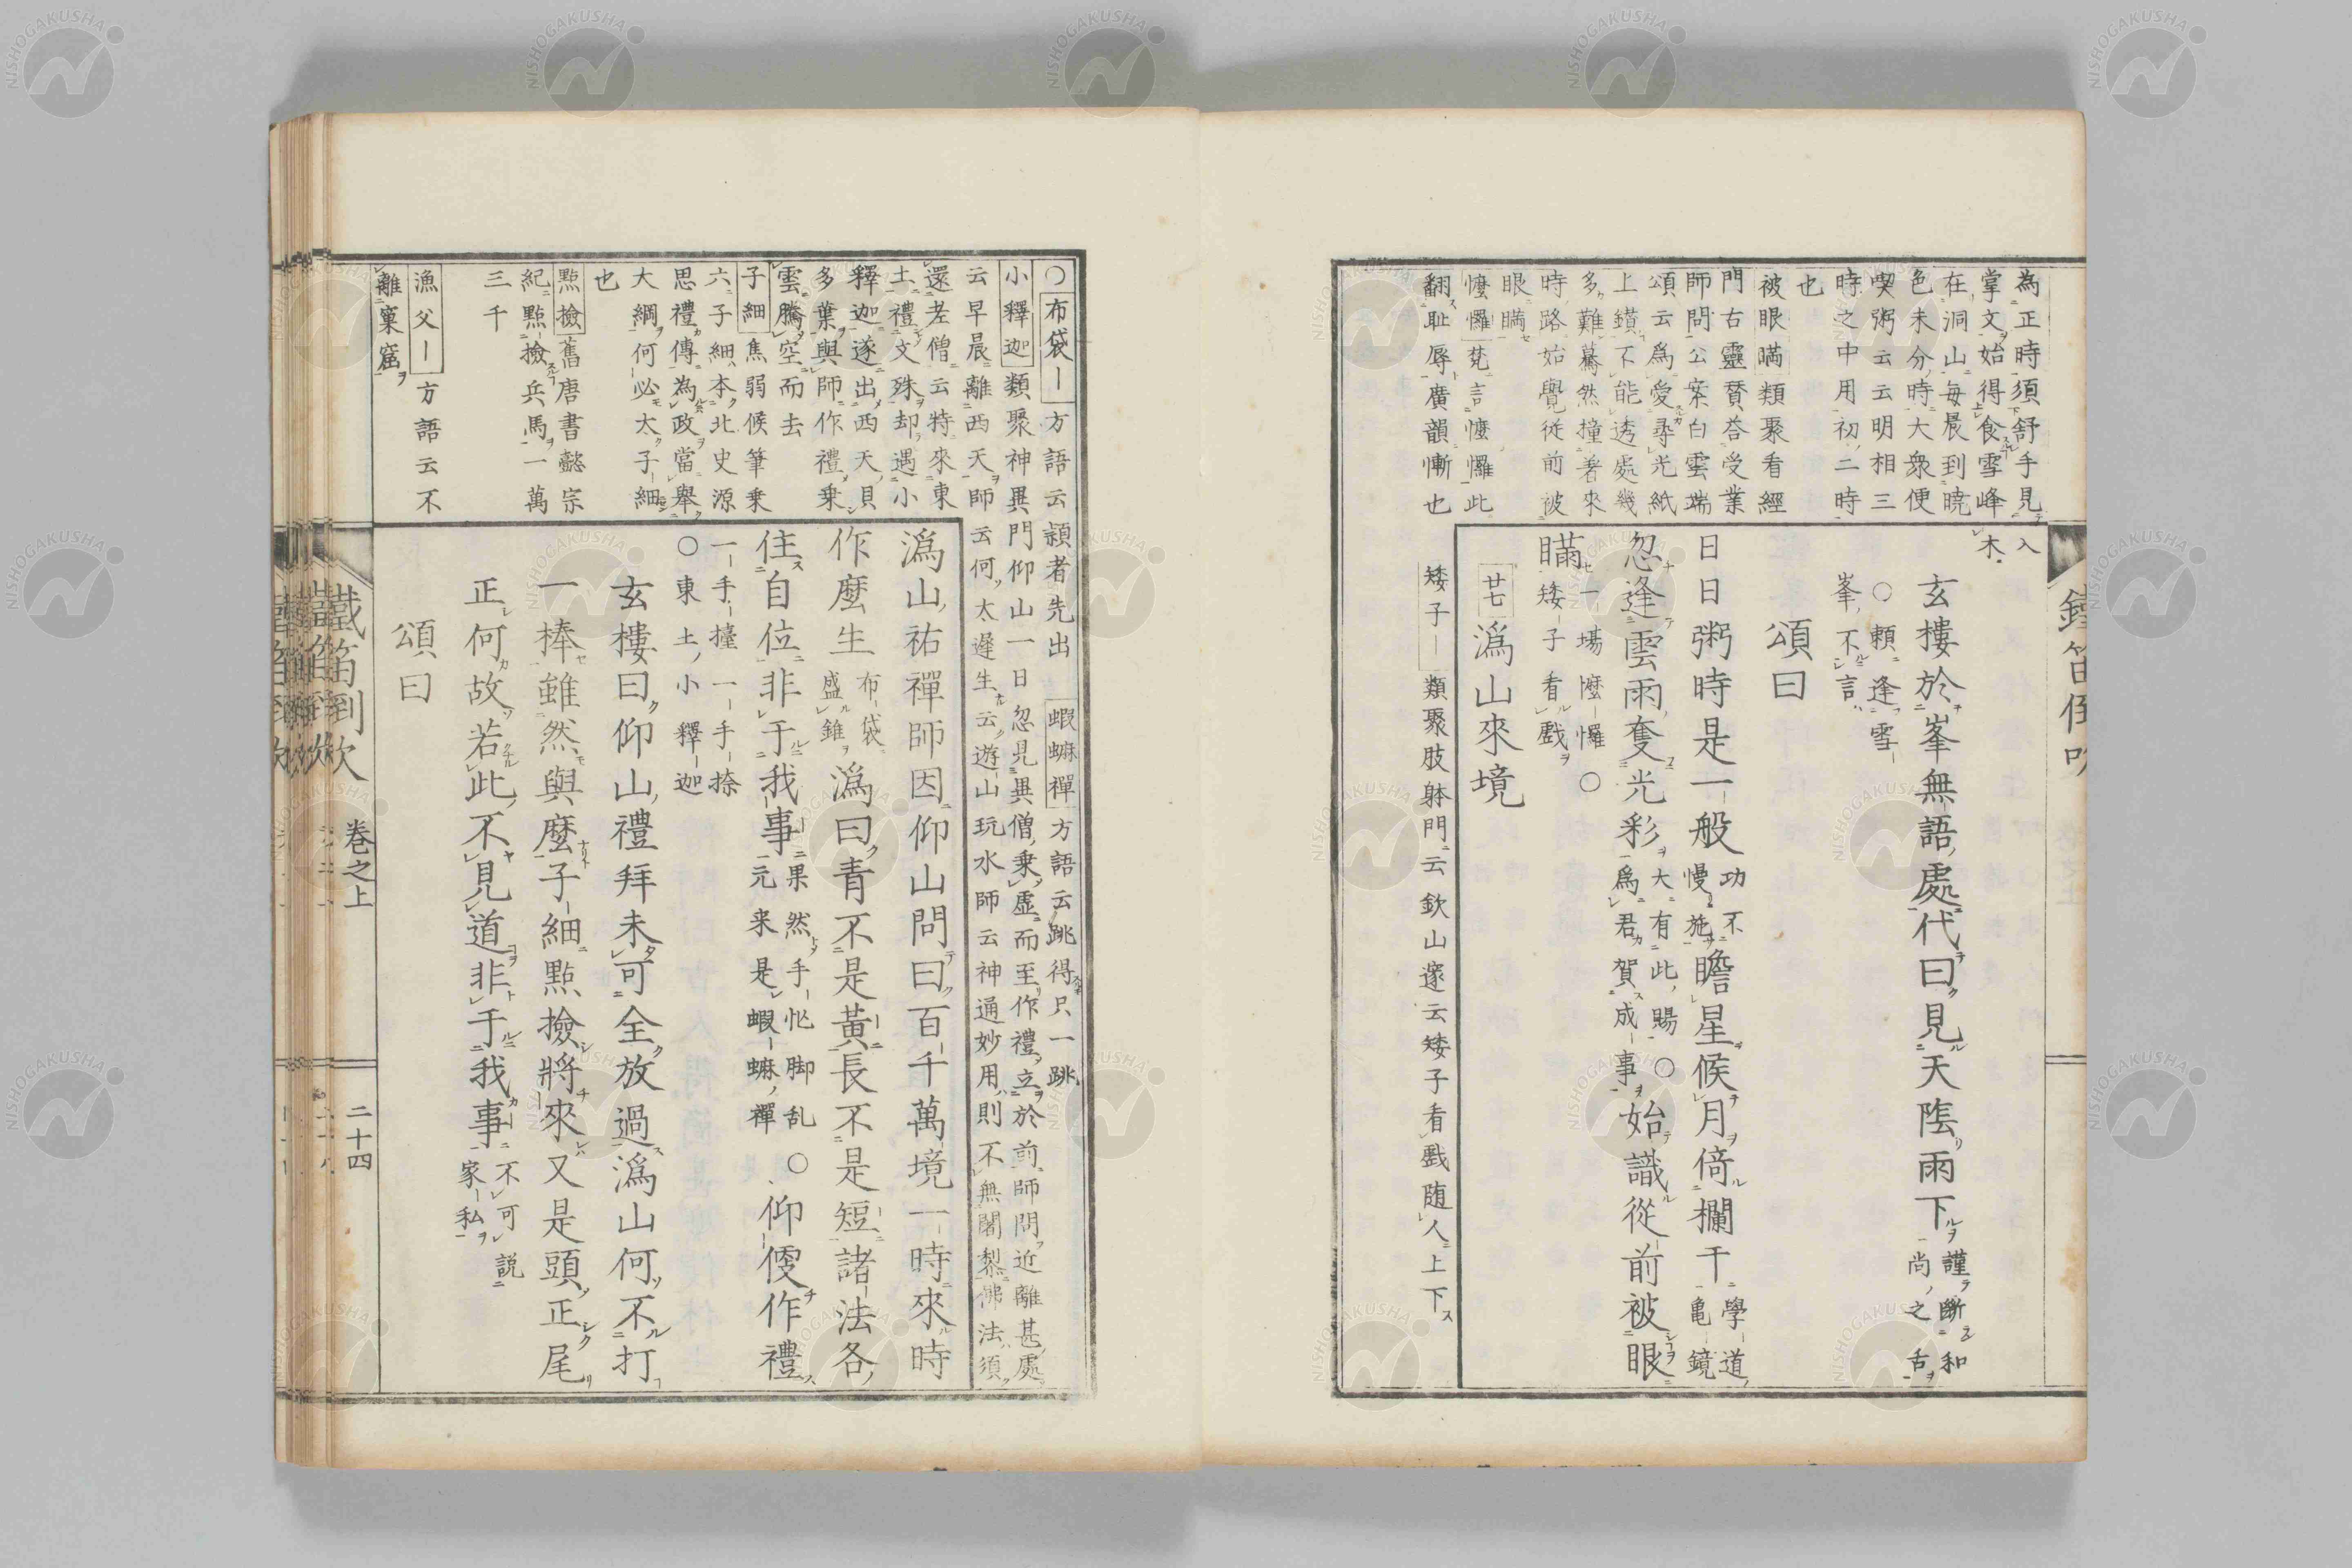 為正時須舒手見
掌文始得食雪峰
在洞山毎晨到曉
色未分時大衆便
喫粥云云明相三
時之中用初二時
也
被眼瞞類聚看經
門古靈賛答受業
師問公案白雲端
頌云爲愛尋光紙
上鑚不能透處幾
多難驀然撞著來
時路始覺從前被
眼瞞
懡㦬梵言懡㦬此
翻耻辱廣韻慚也
入
木
玄樓於峯無語處代曰見天陰雨下謹斷和
尚之舌
○賴逢雪
峯不言
頌曰
日日粥時是一般功不
慢施瞻星候月倚欄干學道
亀鏡
忽逢雲雨奪光彩大有此賜○
爲君賀成事始識從前被眼
瞞一場懡㦬○
矮子看戲
廿七 潙山來境
矮子｜類聚肢躰門云欽山邃云矮子看戲随人上下
○布袋｜方語云頴者先出 蝦蟵禪方語云跳得只一跳
小釋迦類聚神異門仰山一日忽見異僧乗虚而至作禮立於前師問近離甚處
云早晨離西天師云何太遲生云遊山玩水師云神通妙用則不無闍黎佛法須
還老僧云特來東
土禮文殊却遇小
釋迦遂出西天貝
多葉與師作禮乗
雲騰空而去
子細焦弱候筆乗
六子細本北史源
思禮傳為政當舉
大綱何必太子細
也
點撿舊唐書懿宗
紀點撿兵馬一萬
三千
漁父｜方語云不
離窠窟
潙山祐禪師因仰山問曰百千萬境一時來時
作麼生布袋
盛錐潙曰青不是黃長不是短諸法各
住自位非于我事果然手忙脚乱○
元来是蝦蟵禪仰便作禮
一手擡一手捺
○東土小釋迦
玄樓曰仰山禮拜未可全放過潙山何不打
一棒雖然與麼子細點撿將來又是頭正尾
正何故若此不見道非于我事不可説
家私
頌曰
鐵笛倒吹
卷之上
二十四